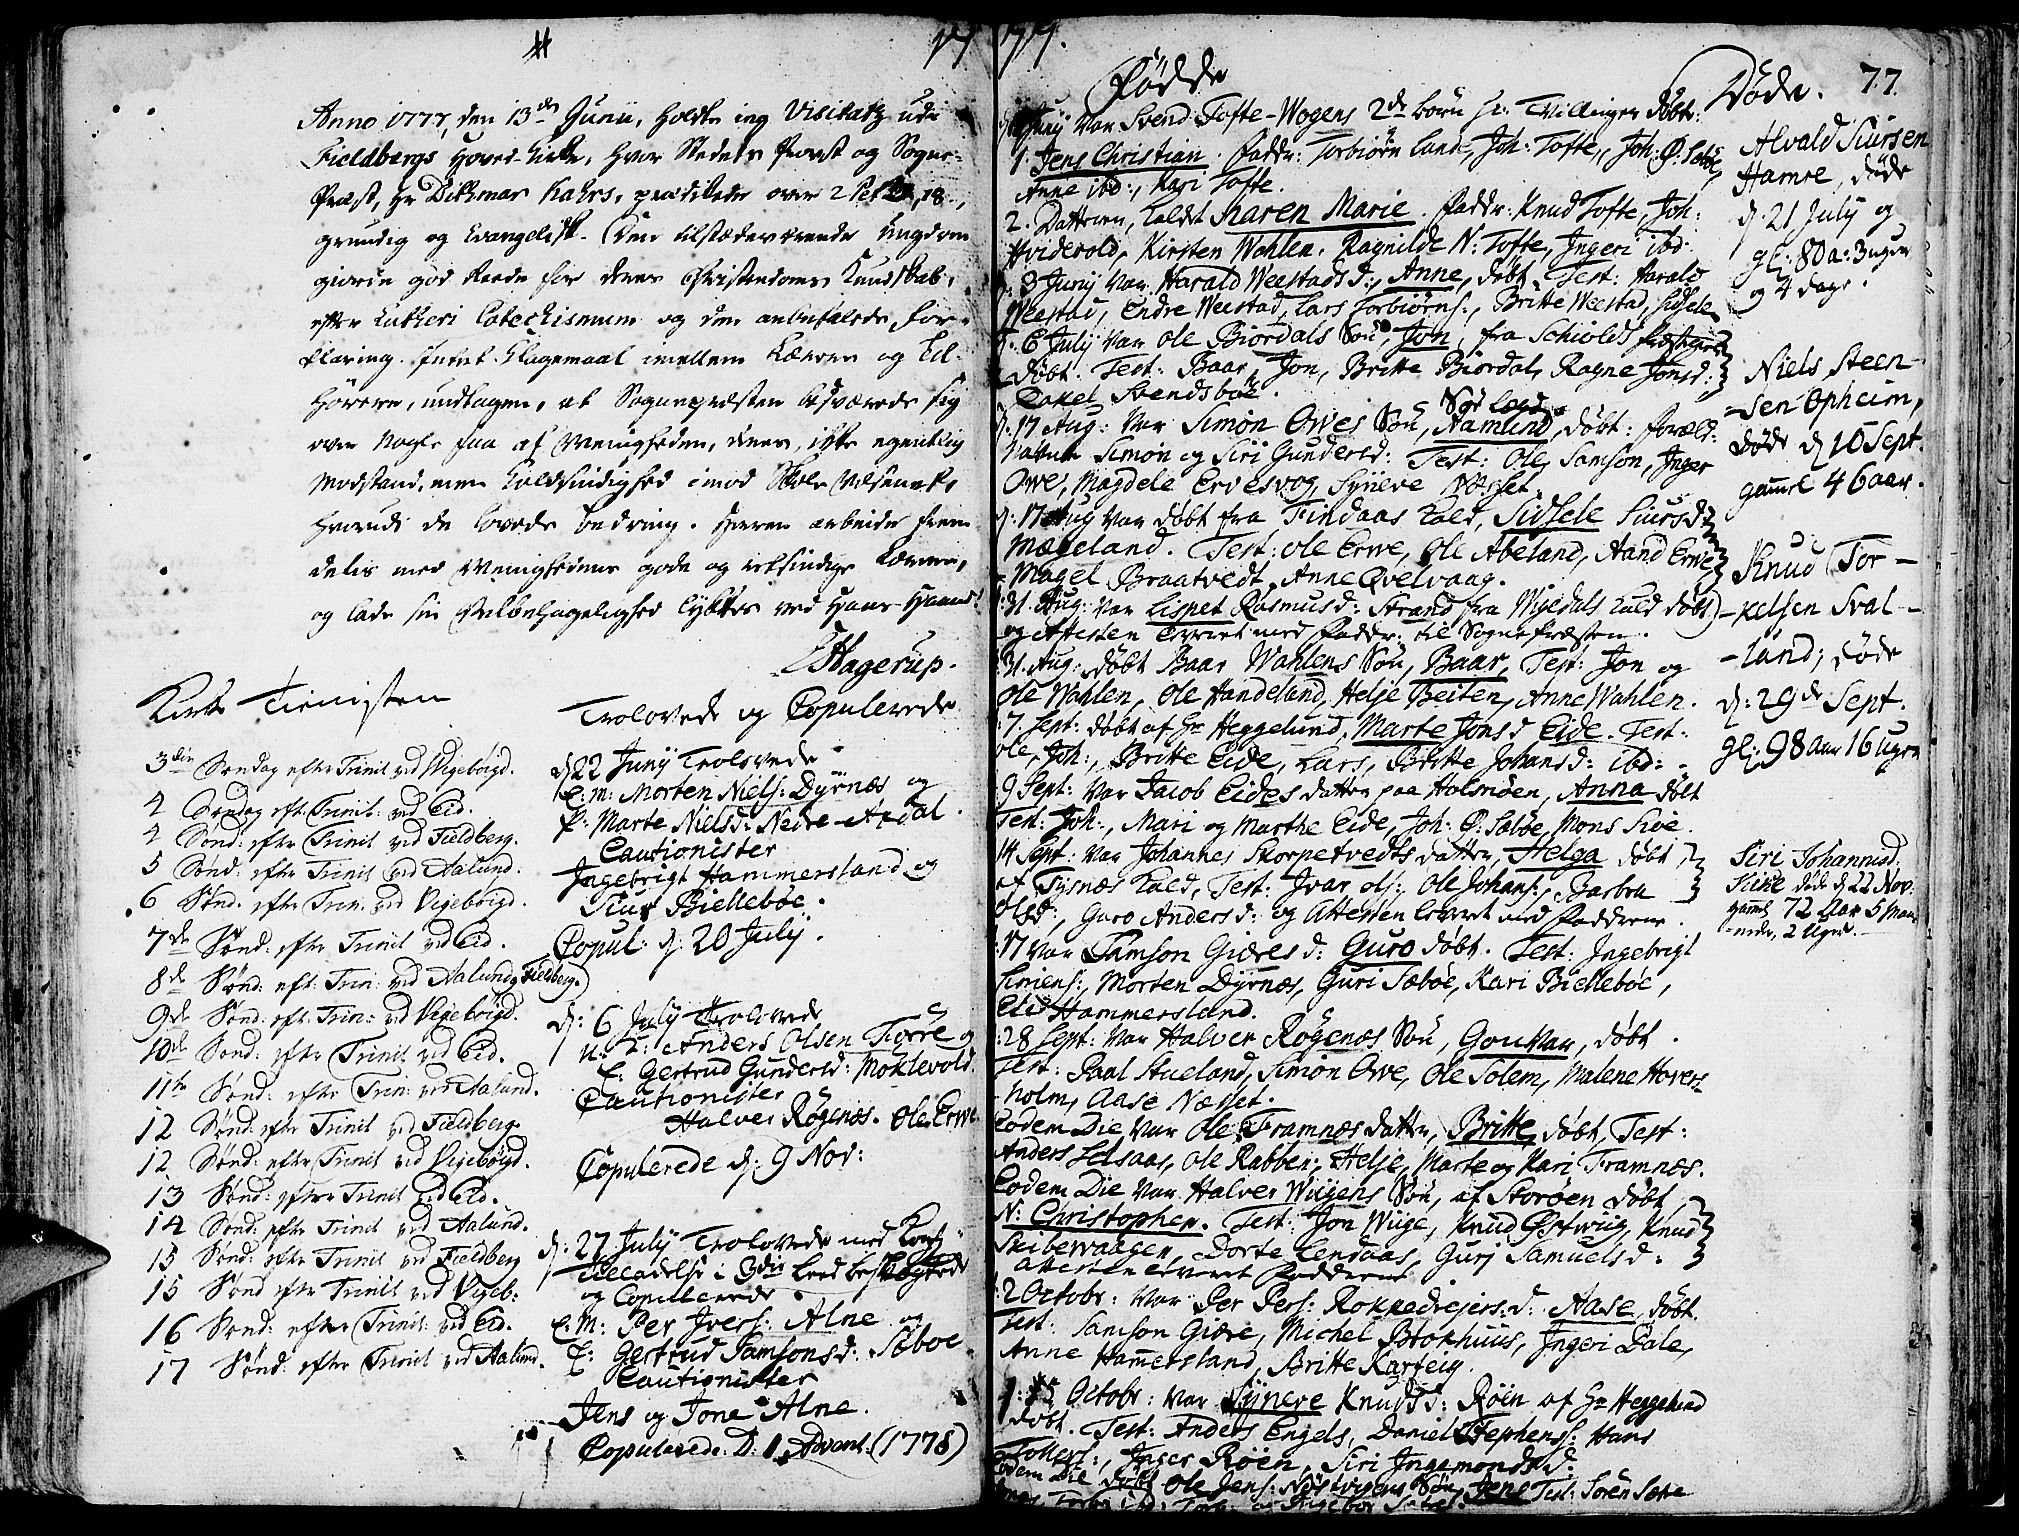 Anno 1777, den 13de Junii, holdte ieg Visitatz udi
Fieldbergs Hoved-Kirke, hvor Stedets Provst og Sogne-
Præst, Hr Dithmar Kahrs, prædikede over 2 Pet. 18.,
grundig og Evangelisk. Den tilstædeværende Ungdom
giorde god Rede for deres Christendoms Kundskab,
efter Lutheri Catechismum og den anbefalede For-
klaring. Intet Klagemaal imellem Læreren og Til-
hørerne, undtagen, at Sognepræsten besværede sig
over nogle faa af Menigheden, deres, ikke egentlig
Modstand, men Koldsindighed imod Skole Væsenet,
hvorudi de lovede bedring. Herren arbeide frem
deles med Menighedens gode og retsindige Lærere,
og lade sin Velbehagelighed lykkes ved Hans Haand!
E Hagerup.
Kirke Tienisten
3die Søndag efter Trinit ved Wigebøigd.
4 Søndag eft. Trinit: ved Eid.
4 Sønd: efter Trinit ved Fieldberg.
5 Sønd: efter Trinit ved Aalund.
6 Sønd. efter Trin: ved Vigebøigd.
7de Sønd: efter Trinit ved Eid.
8de Sønd: eft: Trin: ved Aalund og Fieldberg.
9de Sønd: eft. Trin: ved Vigebøigd.
10de Sønd: efter Trinit ved Eid.
11te Sønd: efter Trin: ved Aalund.
12 Sønd: efter Trinit ved Fieldberg.
12 Sønd: efter Trinit ved Vigebøigd.
13 Sønd: efter Trinit ved Eid.
14 Sønd: efter Trinit ved Aalund.
15 Sønd: efter Trinit ved Fieldberg
15 Sønd efter Trinit ved Vigeb:
16 Sønd: efter Trinit: ved Eid.
17 Sønd: efter Trinit ved Aalund.
Trolovede og Copulerede
d. 22 Junij Trolovede
E: M: Morten Niels: Dyrnæs og
P: Marte Nielsd: Nedre-Axdal.
Cautionister
Ingebrigt Hammersland og
Siur Biellebøe.
Copul: d: 20 July.
d: 6 July Trolovede
U: K: Anders Olsen Torre og
E: Gertrud Gundersd: Moklevold
Cautionister
Halver Røgenæs. Ole Erve
Copulerede d: 9 Nov:
d: 27 July Trolovede med Kong:
Tilladelse i 3die Leed beslægtede
og Copulerede
E: M: Per Ivers: Alne og
E: Gertrud Samsonsd: Sæboe
Cautionister
Jens og Jone Alne.
Copulerede: D: 1 Advent. (1778)
Fødde
Junij var Svend Tofte-Wogens 2de børn sc: Tvillinger døbt:
1. Jens Christian. Faddr: Torbiørn Land, Joh: Tofte, Joh: Ø: Sæbøe,
Anne ibd:, Kari Tofte.
2. Datteren, kaldet Karen Marie. Faddr: Knud Tofte, Joh:
Hviderold, Kirsten Wahlen, Ragnilde N: Tofte, Ingeri ibd:
3 Junij var Harald Weestads d:, Anne, døbt. Test: Harald
Weestad, Endre Weestad, Lars Torbiørns:, Britte Weestad, Sidsele
6 July var Ole Biordals Søn, Jon, fra Schiolds Præstegield
døbt. Test: Baar, Jon, Britte Biordal, Ragne Jonsd:
Eakel Svendsboe.
d. 17 Aug: var Simon Owes Søn, Aamund, døbt: Foræld:
navne Simon og Siri Gundersd: Test: Ole, Samson, Inger
Owe, Magdele Ervesvog, Syneve Næsset.
d. 17 Aug var døbt fra Findaas Kald, Sidsele Siursd:
Mæheland. Test: Ole Erve, Ole Abeland, Aand Erve
Magel Braatvedt, Anne Qvelvaag.
31. Aug: var Lispet Rasmusd: Strand fra Wigedals Kald døbt
og Attesten leveret med Faddr: til Sognepræsten.
31. Aug: døbt Baar Wahlens Søn, Baar, Test: Jon og
Ole Wahlen, Ole Handeland, Helje Beiten, Anne Wahlen.
7. Sept: døbt af Hr Heggelund, Marte Jonsd Eide. Test:
Ole, Joh:, Britte Eide, Lars, Britte Johansd: ibd:
9 Sept: var Jacob Eides datter paa Holsnøen, Anna døbt
Test: Joh:, Mari og Marthe Eide, Joh: Ø: Sæbøe, Mons Sioe.
14 Sept: var Johannes Skorpetvedts datter, Helga døbt
af Tysnæs Kald, Test: Ivar Ols:, Ole Johans:, Barbra
Olsd:, Guro Andersd: og Attesten leveret med Fadderne.
17 var Samson Giæres d: Guro døbt. Test: Ingebrigt
Simens:, Morten Dyrnæs, Guri Sæbøe, Kari Biellebøe,
Eli Hammersland.
28 Sept: var Halver Røgenæs Søn, Gouvar, døbt.
Test: Paal Stueland, Simon Owe, Ole Solem, Malene Hovers-
holm, Aase Næsset.
Eodem Die var Ole Framnæs datter, Britte, døbt, Test:
Anders Lelsaas, Ole Rabben, Helje, Marte og Kari Framnæs.
Eodem Die var Halver Wigens Søn, af Storøen døbt,
N: Christopher. Test: Jon Wiige, Knud Østwiig, Knud
Skibervaagen, Dorte Lendaas, Guri Samuelsd:
Attesten leveret Fadderne
2 Octobr: var Per Pers: Rokkedrejers d: Aase døbt.
Test: Samson Giære, Michel Stokhuus, Ingeri Dale,
Anne Hammersland, Britte Karteig.
Octobr: var Synere Knudsd: Røen af Hr Heggelund
døbt. Test: Anders Engels, Daniel Stephens: Hans
Tollers:, Inger Røen, Siri Ingemondsd:
Eodem Die døbt Ole Jens: Nøstvigens Søn, Jens Test: Søren Sætre
Døde. 77
Alvald Siursen
Hamre, døde
d. 21 July og
gl: 80 a: 3 uger
og 4 dage.
Niels Steen-
-sen Opheim,
døde d 10 Sept.
gammel 46 aar.
Knud Tor-
-kelsen Sval-
-land, døde
d: 29de Sept.
gl: 98 aar 16 uger
Siri Johannesd:
Sioe døde d 22 Nov:
gaml 72 Aar 5 Maa-
-neder, 2 Uger.